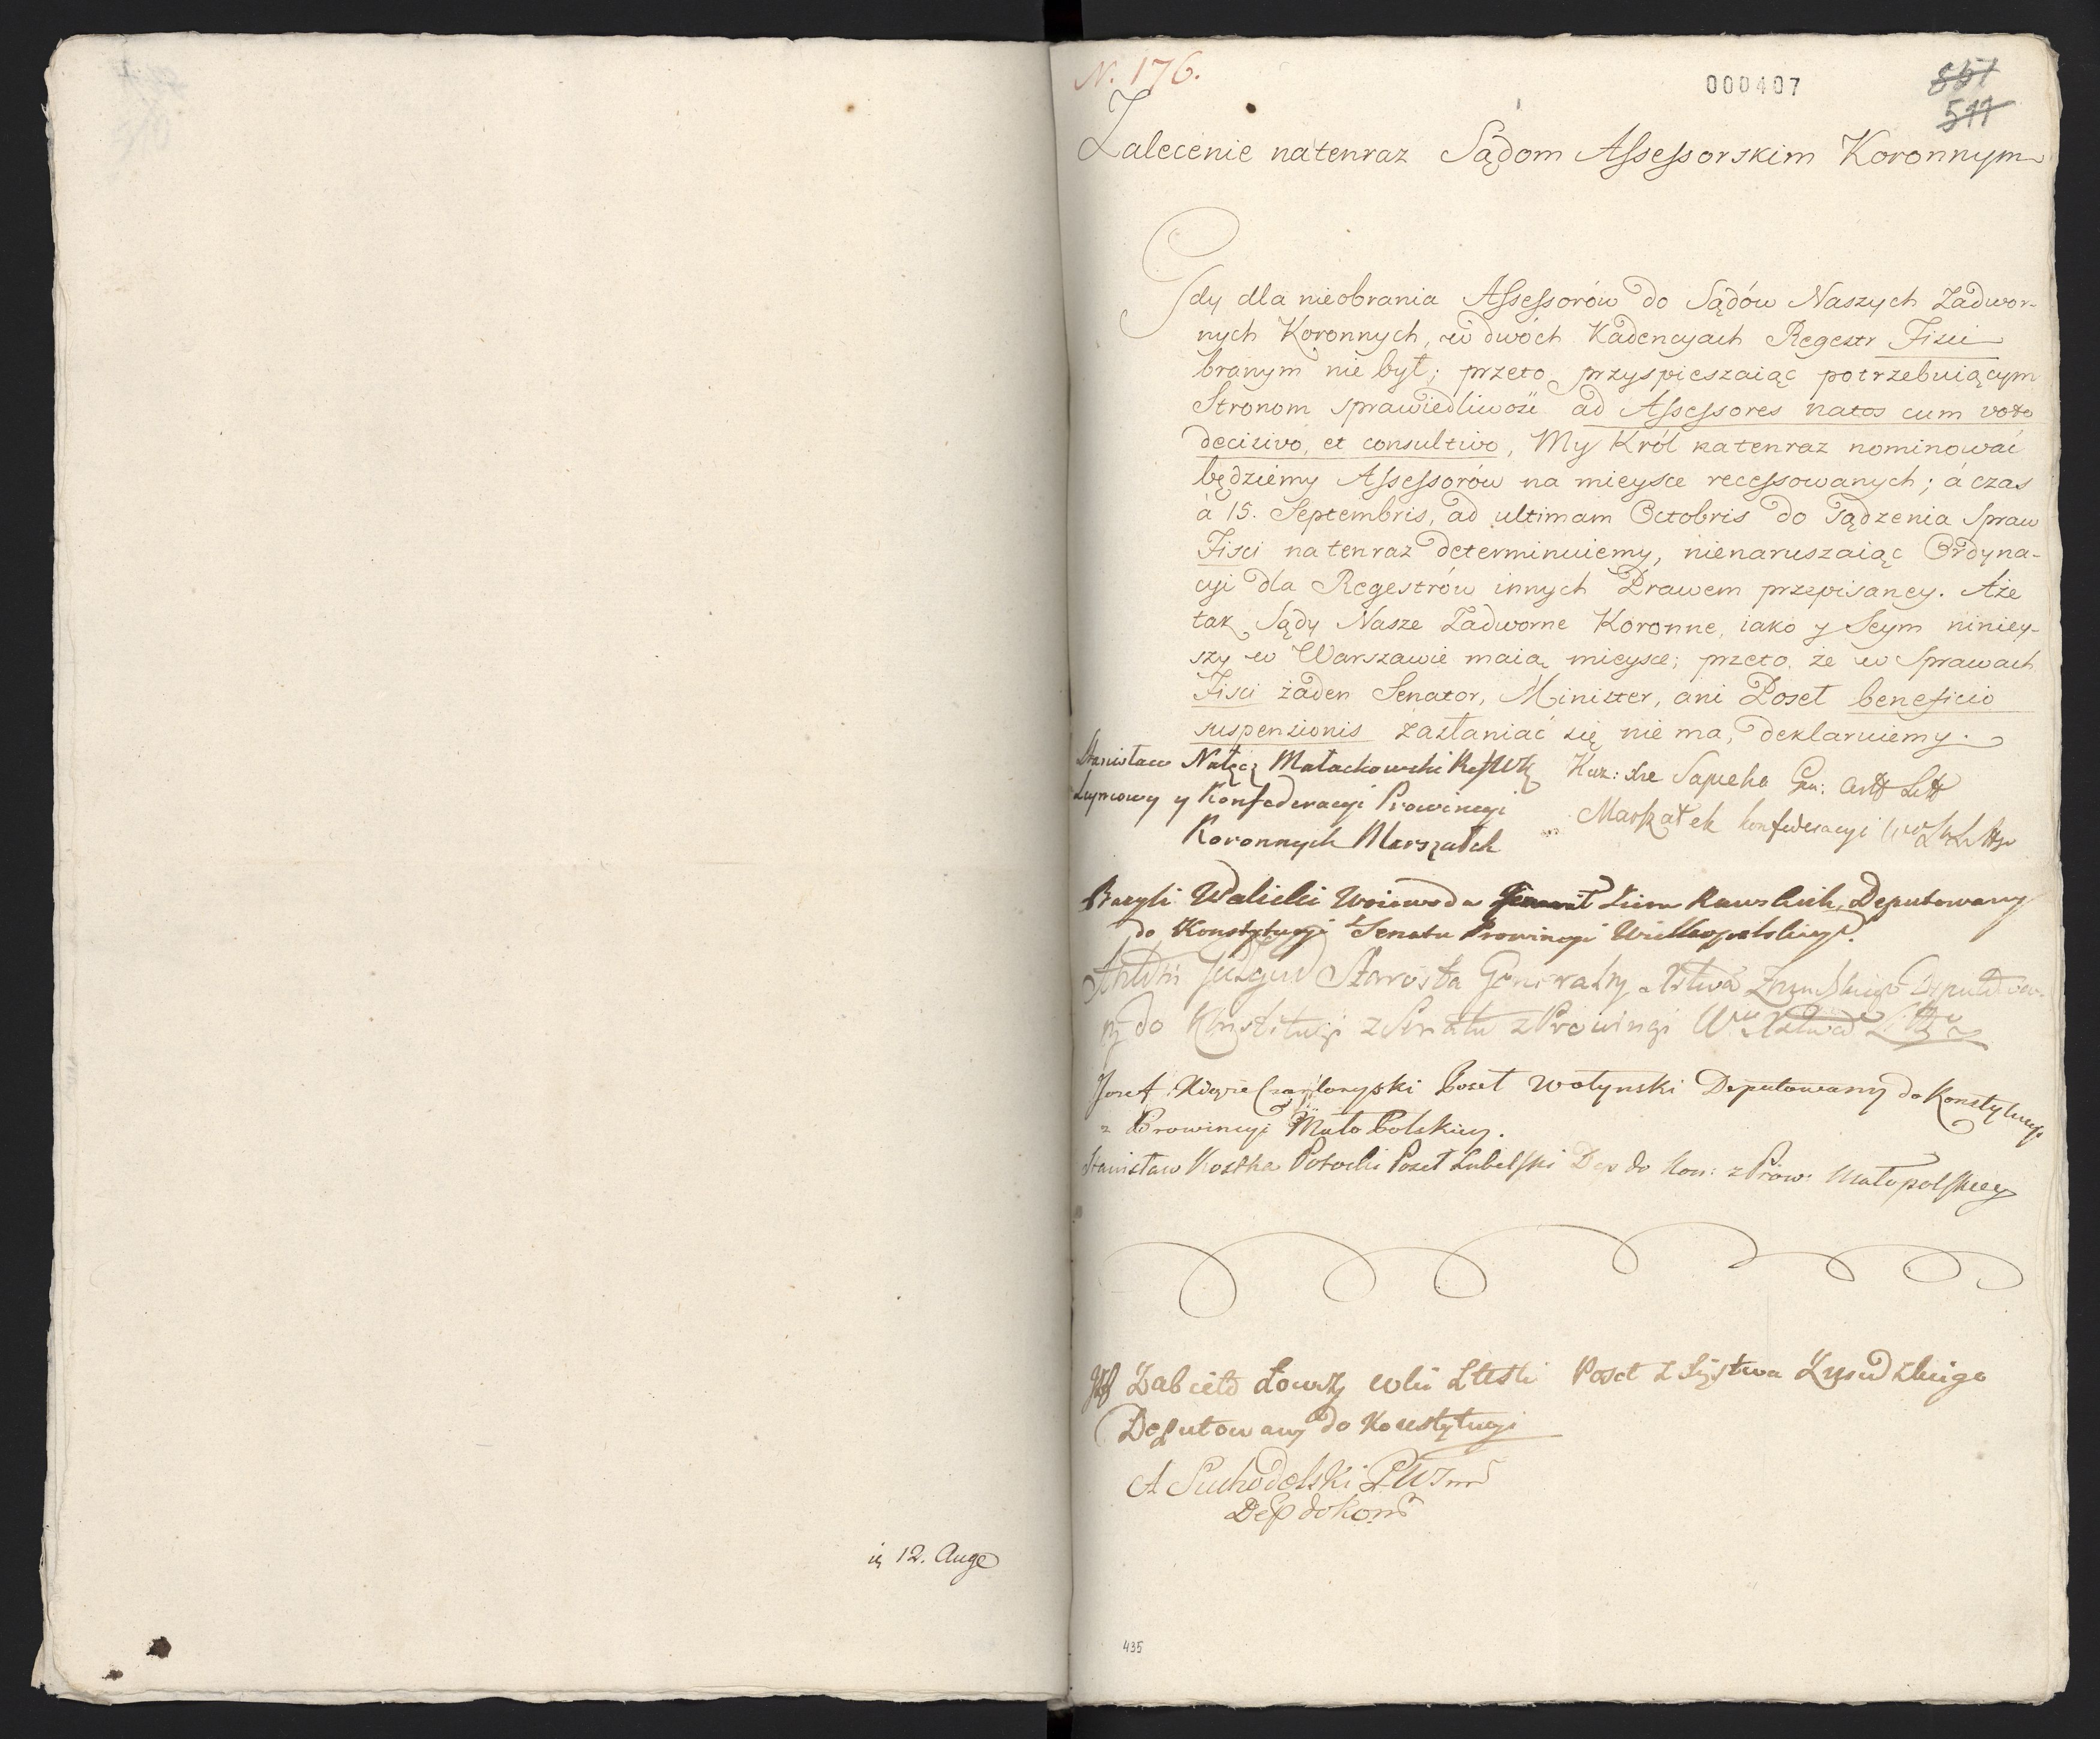 ię 12. Auge
N. 176.
000407
867
511
Zalecenie natenraz Sądom Assessorskim Koronnym
Gdy dla nieobrania Assessorów do Sądów Naszych Zadwor-
nych Koronnych, w dwóch Kadencyach Regestr Fisci
branym nie był; przeto przyspieszaiąc potrzebuiącym
Stronom sprawiedliwość ad Assessores natos cum voto
decisivo, et consultivo, My Król natenraz nominować
będziemy Assessorów na mieysce recessowanych; á czas
à 15. Septembris, ad ultimam Octobris do sądzenia Spraw
Fisci natenraz determinuiemy, nienaruszaiąc Ordyna-
cyi dla Regestrów innych Prawem przepisaney. Aże
tak Sądy Nasze Zadworne Koronne, iako y Seym niniey-
szy w Warszawie maią mieysce; przeto, że w Sprawach
Fisci żaden Senator, Minister, ani Poseł beneficio
suspensionis zasłaniać się nie ma, deklaruiemy.
Stanisław Nałęcz Małachowski
Seymowy y Konfederacyi Prowincyi
Koronnych Marszałek
Kaz: Xże Sapieha Gen: Artt Litt
Marszałek konfederacyi
Bazyli Walicki Woiewoda Ziem Rawskich, Deputowany
do Konstytucyi z Senatu Prowincyi Wielkopolskiey.
Antoni Giełgud Starosta Generalny Xstwa Żmudzkiego Deputowa-
ny do Konstitucyi z Senatu z Prowincyi W Xstwa
Jozef Xiąże Czartoryski Poseł Wołynski Deputowany do Konstytucyi
z Prowincyi Mało Polskiey.
Stanisław Kostka Potocki Poseł Lubelski Dep do Kon: z Prow: Małopolskiey
Zabiełło Łowczy Poseł z Xięstwa Żmudzkiego
Deputowany do Konstytucyi
A Suchodolski
Dep do Kons
435